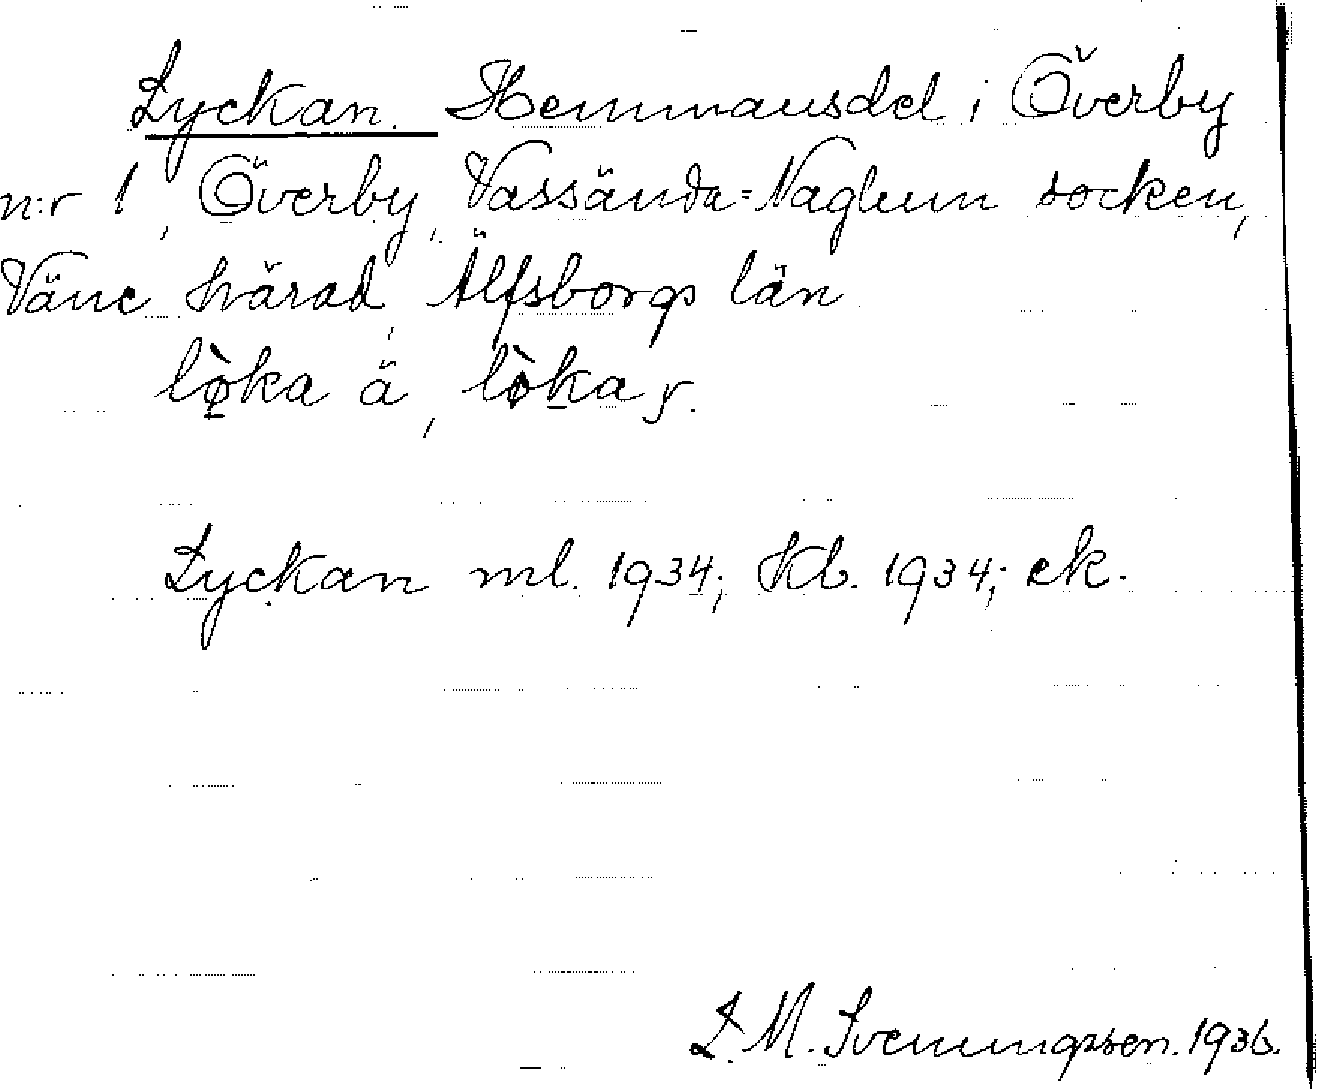 Lyckan. Hemmansdel i Överby
n:r 1, Överby, Vassända=Naglum socken,
Väne härad, Älfsborgs län
lo̱̍ka ä, lo̱ka y.
Lyckan ml. 1934; kb. 1934; ek.
L. M. Svenungsson. 1936.